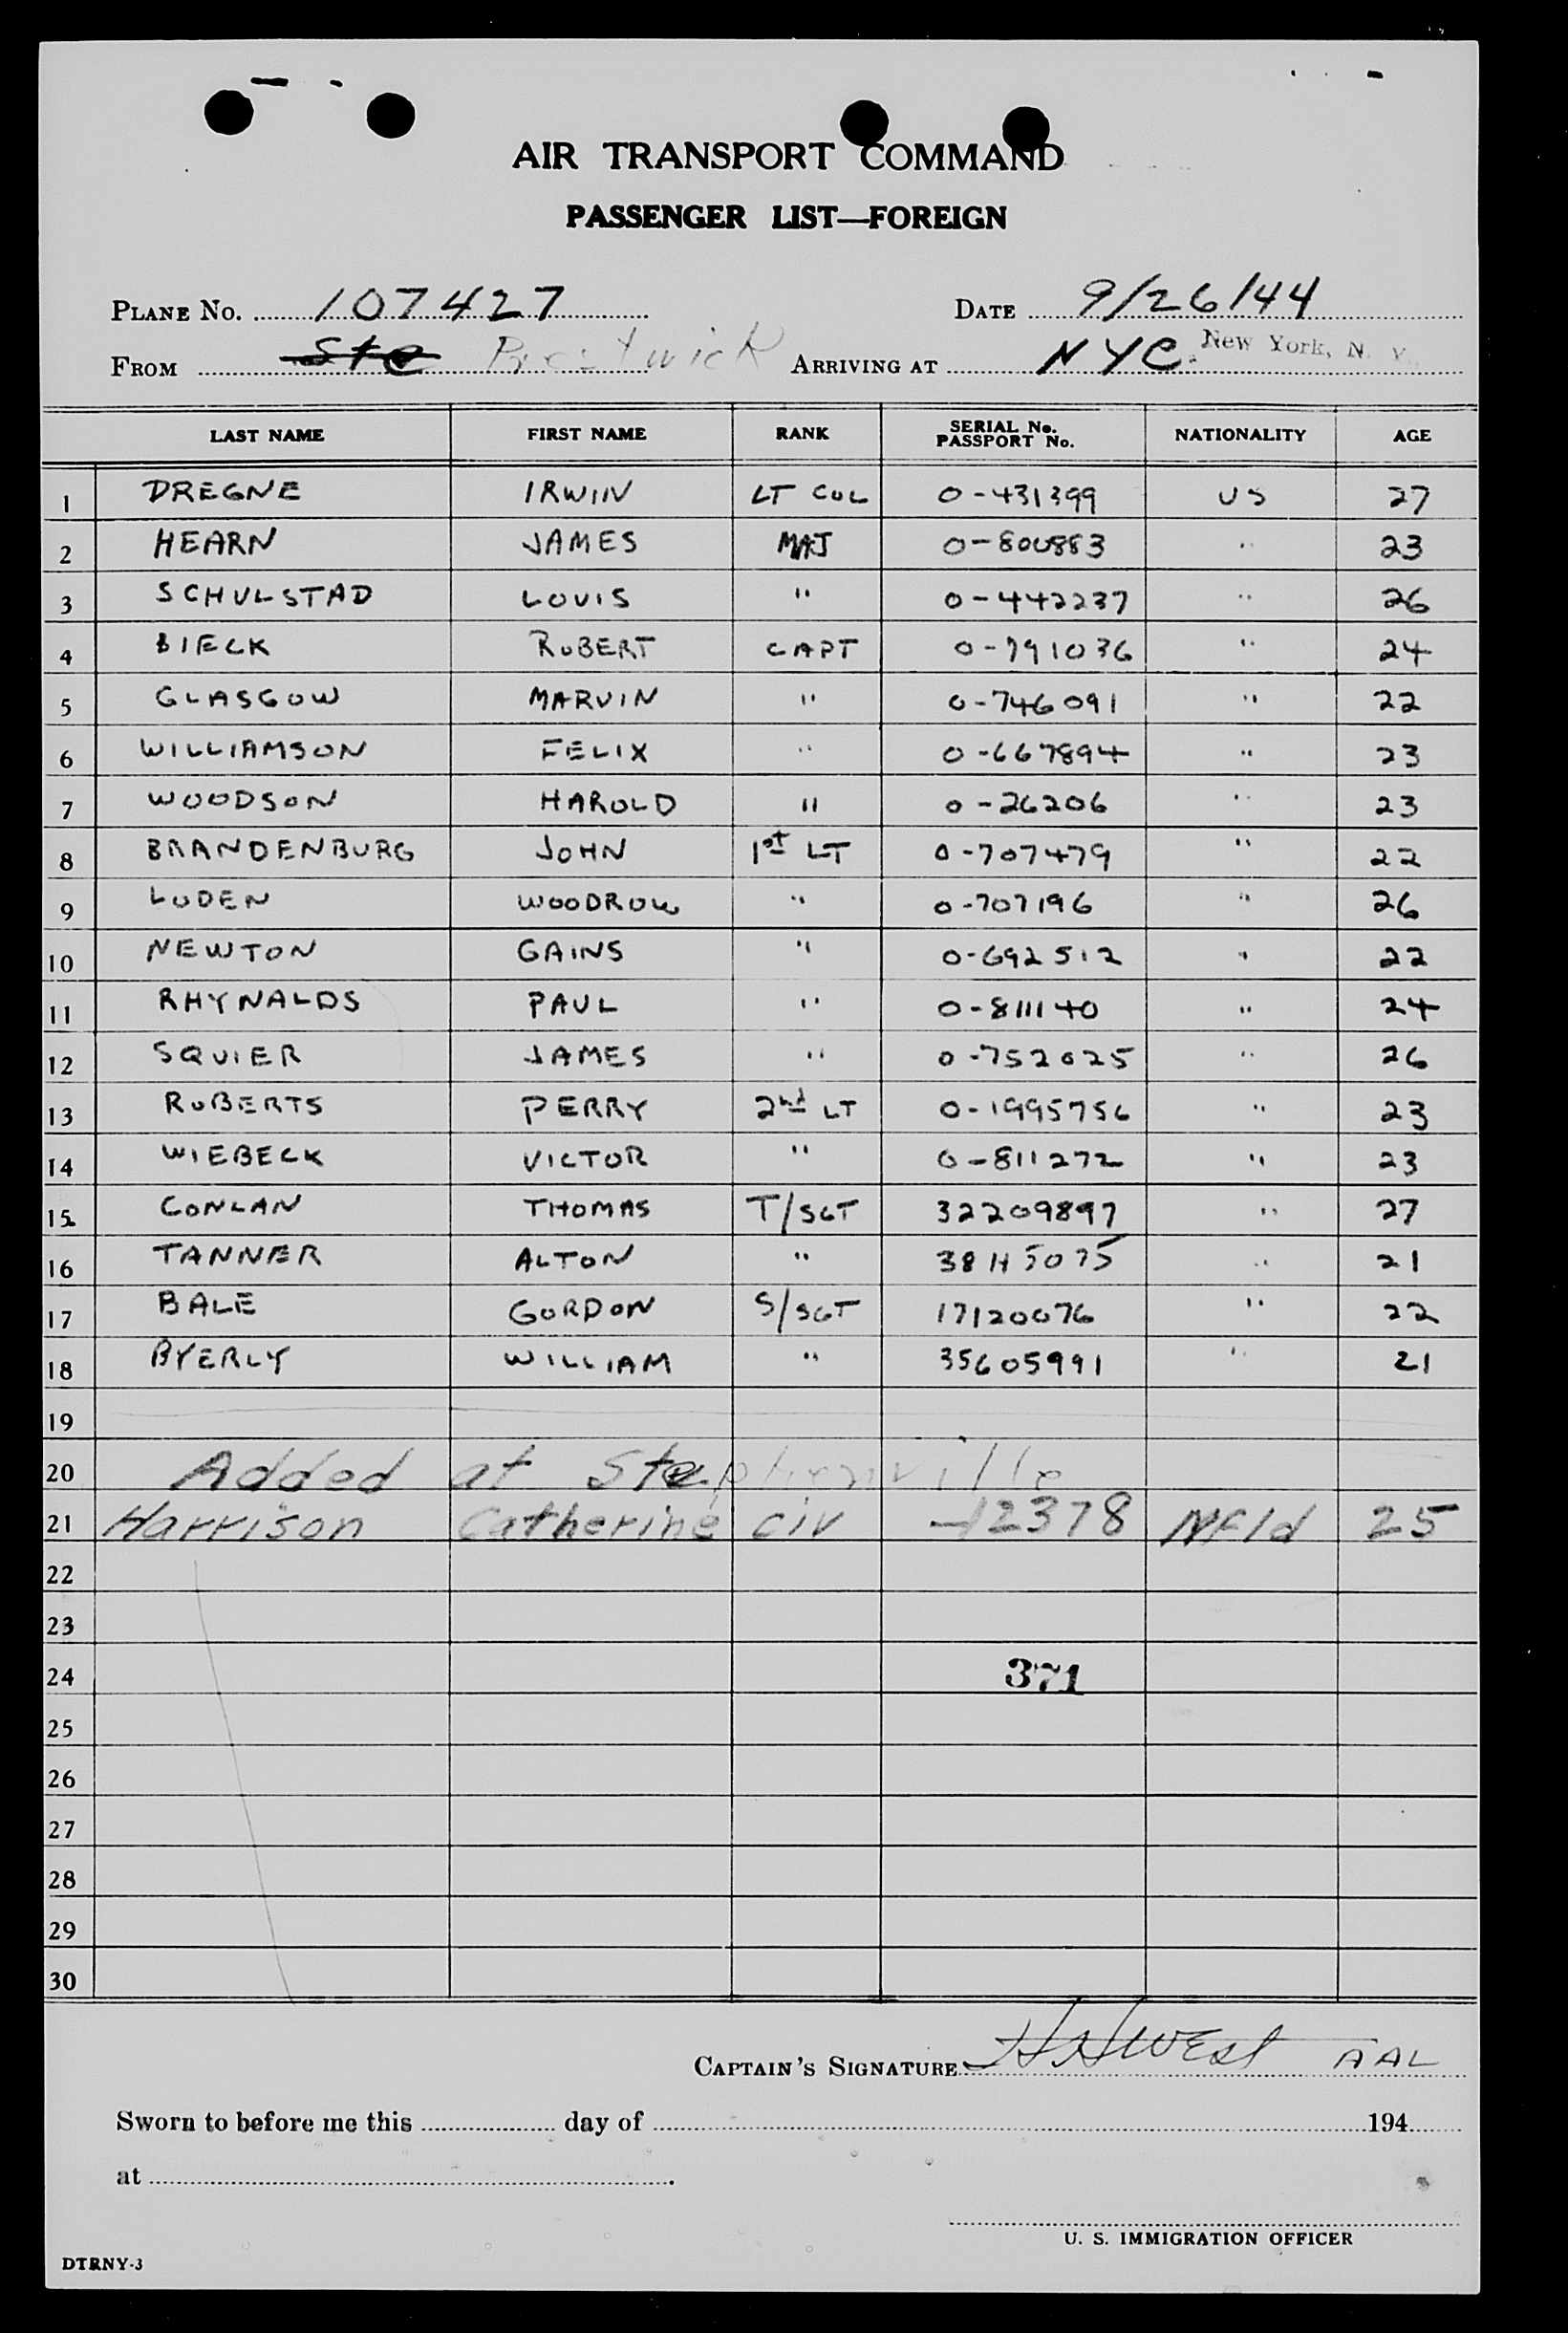 AIR TRANSPORT COMMAND
PASSENGER LIST—FOREIGN
PLANE No. 107427 DATE 9/26/44
FROM Ste Prestwick ARRIVING AT NYC. New York, N. Y.
LAST NAME FIRST NAME RANK SERIAL No. PASSPORT No. NATIONALITY AGE
1 DREGNE IRWIN LT COL 0-431399 US 27
2 HEARN JAMES MAJ 0-800883 " 23
3 SCHULSTAD LOUIS " 0-442237 " 26
4 BIECK ROBERT CAPT 0-791036 " 24
5 GLASGOW MARVIN " 0-746091 " 22
6 WILLIAMSON FELIX " 0-667894 " 23
7 WOODSON HAROLD " 0-26206 " 23
8 BRANDENBURG JOHN 1st LT 0-707479 " 22
9 LODEN WOODROW " 0-707196 " 26
10 NEWTON GAINS " 0-692512 " 22
11 RHYNALDS PAUL " 0-811140 " 24
12 SQUIER JAMES " 0-752025 " 26
13 ROBERTS PERRY 2nd LT 0-1995756 " 23
14 WIEBECK VICTOR " 0-811272 " 23
15 CONLAN THOMAS T/SGT 32209897 " 27
16 TANNER ALTON " 38145075 " 21
17 BALE GORDON S/SGT 17120076 " 22
18 BYERLY WILLIAM " 35605991 " 21
19
20 Added at Stephenville
21 Harrison Catherine civ -12378 NFld 25
22
23
24 371
25
26
27
28
29
30
CAPTAIN'S SIGNATURE AAL
Sworn to before me this day of 194
at .
U. S. IMMIGRATION OFFICER
DTRNY-3